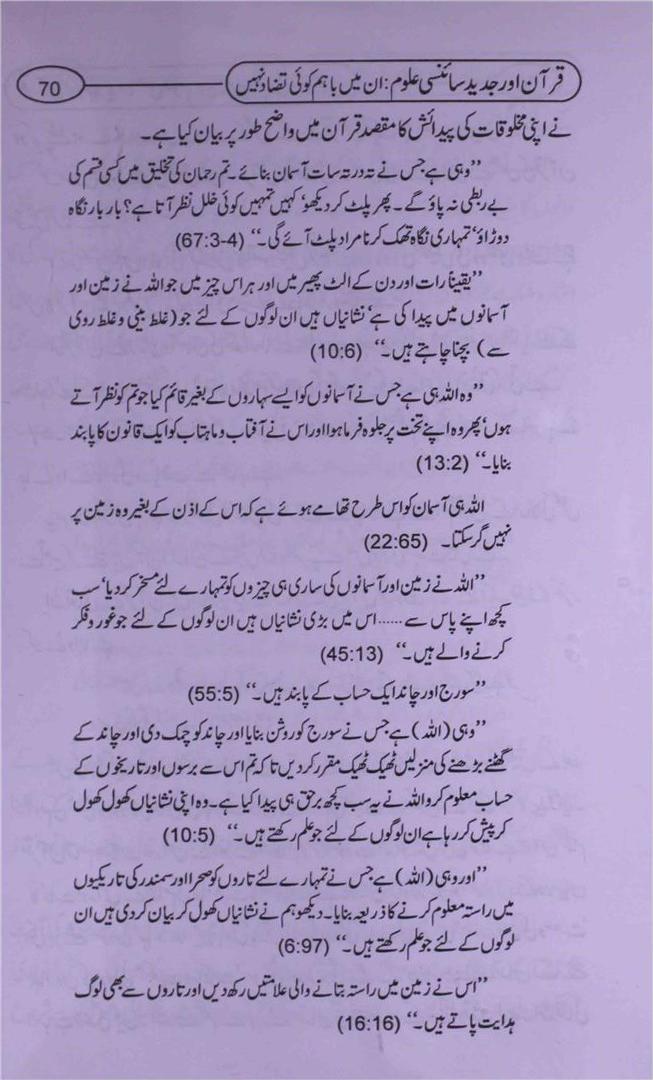 قرآن اور جدید سائنسی علوم: ان میں باہم کوئی تضاد نہیں
70
نے اپنی مخلوقات کی پیدائش کا مقصد قرآن میں واضح طور پر بیان کیا ہے۔
”وہی ہے جس نے تہ در تہ سات آسمان بنائے۔ تم رحمان کی تخلیق میں کسی قسم کی
بے ربطی نہ پاؤ گے۔ پھر پلٹ کر دیکھو‘ کہیں تمہیں کوئی خلل نظر آتا ہے؟ بار بار نگاہ
دوڑاؤ‘ تمہاری نگاہ تھک کر نامراد پلٹ آئے گی۔“ (67:3-4)
”یقیناً رات اور دن کے الٹ پھیر میں اور ہر اس چیز میں جو اللہ نے زمین اور
آسمانوں میں پیدا کی ہے‘ نشانیاں ہیں ان لوگوں کے لئے جو (غلط بینی و غلط روی
سے) بچنا چاہتے ہیں۔“ (10:6)
”وہ اللہ ہی ہے جس نے آسمانوں کو ایسے سہاروں کے بغیر قائم کیا جو تم کو نظر آتے
ہوں‘ پھر وہ اپنے تخت پر جلوہ فرما ہوا اور اس نے آفتاب و ماہتاب کو ایک قانون کا پابند
بنایا۔“ (13:2)
اللہ ہی آسمان کو اس طرح تھامے ہوئے ہے کہ اس کے اذن کے بغیر وہ زمین پر
نہیں گر سکتا۔ (22:65)
”اللہ نے زمین اور آسمانوں کی ساری ہی چیزوں کو تمہارے لئے مسخر کر دیا‘ سب
کچھ اپنے پاس سے ...... اس میں بڑی نشانیاں ہیں ان لوگوں کے لئے جو غور و فکر
کرنے والے ہیں۔“ (45:13)
”سورج اور چاند ایک حساب کے پابند ہیں۔“ (55:5)
”وہی (اللہ) ہے جس نے سورج کو روشن بنایا اور چاند کو چمک دی اور چاند کے
گھٹنے بڑھنے کی منزلیں ٹھیک ٹھیک مقرر کر دیں تا کہ تم اس سے برسوں اور تاریخوں کے
حساب معلوم کرو اللہ نے یہ سب کچھ برحق ہی پیدا کیا ہے۔ وہ اپنی نشانیاں کھول کھول
کر پیش کر رہا ہے ان لوگوں کے لئے جو علم رکھتے ہیں۔“ (10:5)
”اور وہی (اللہ) ہے جس نے تمہارے لئے تاروں کو صحرا اور سمندر کی تاریکیوں
میں راستہ معلوم کرنے کا ذریعہ بنایا۔ دیکھو ہم نے نشانیاں کھول کر بیان کر دی ہیں ان
لوگوں کے لئے جو علم رکھتے ہیں۔“ (6:97)
”اس نے زمین میں راستہ بتانے والی علامتیں رکھ دیں اور تاروں سے بھی لوگ
ہدایت پاتے ہیں۔“ (16:16)